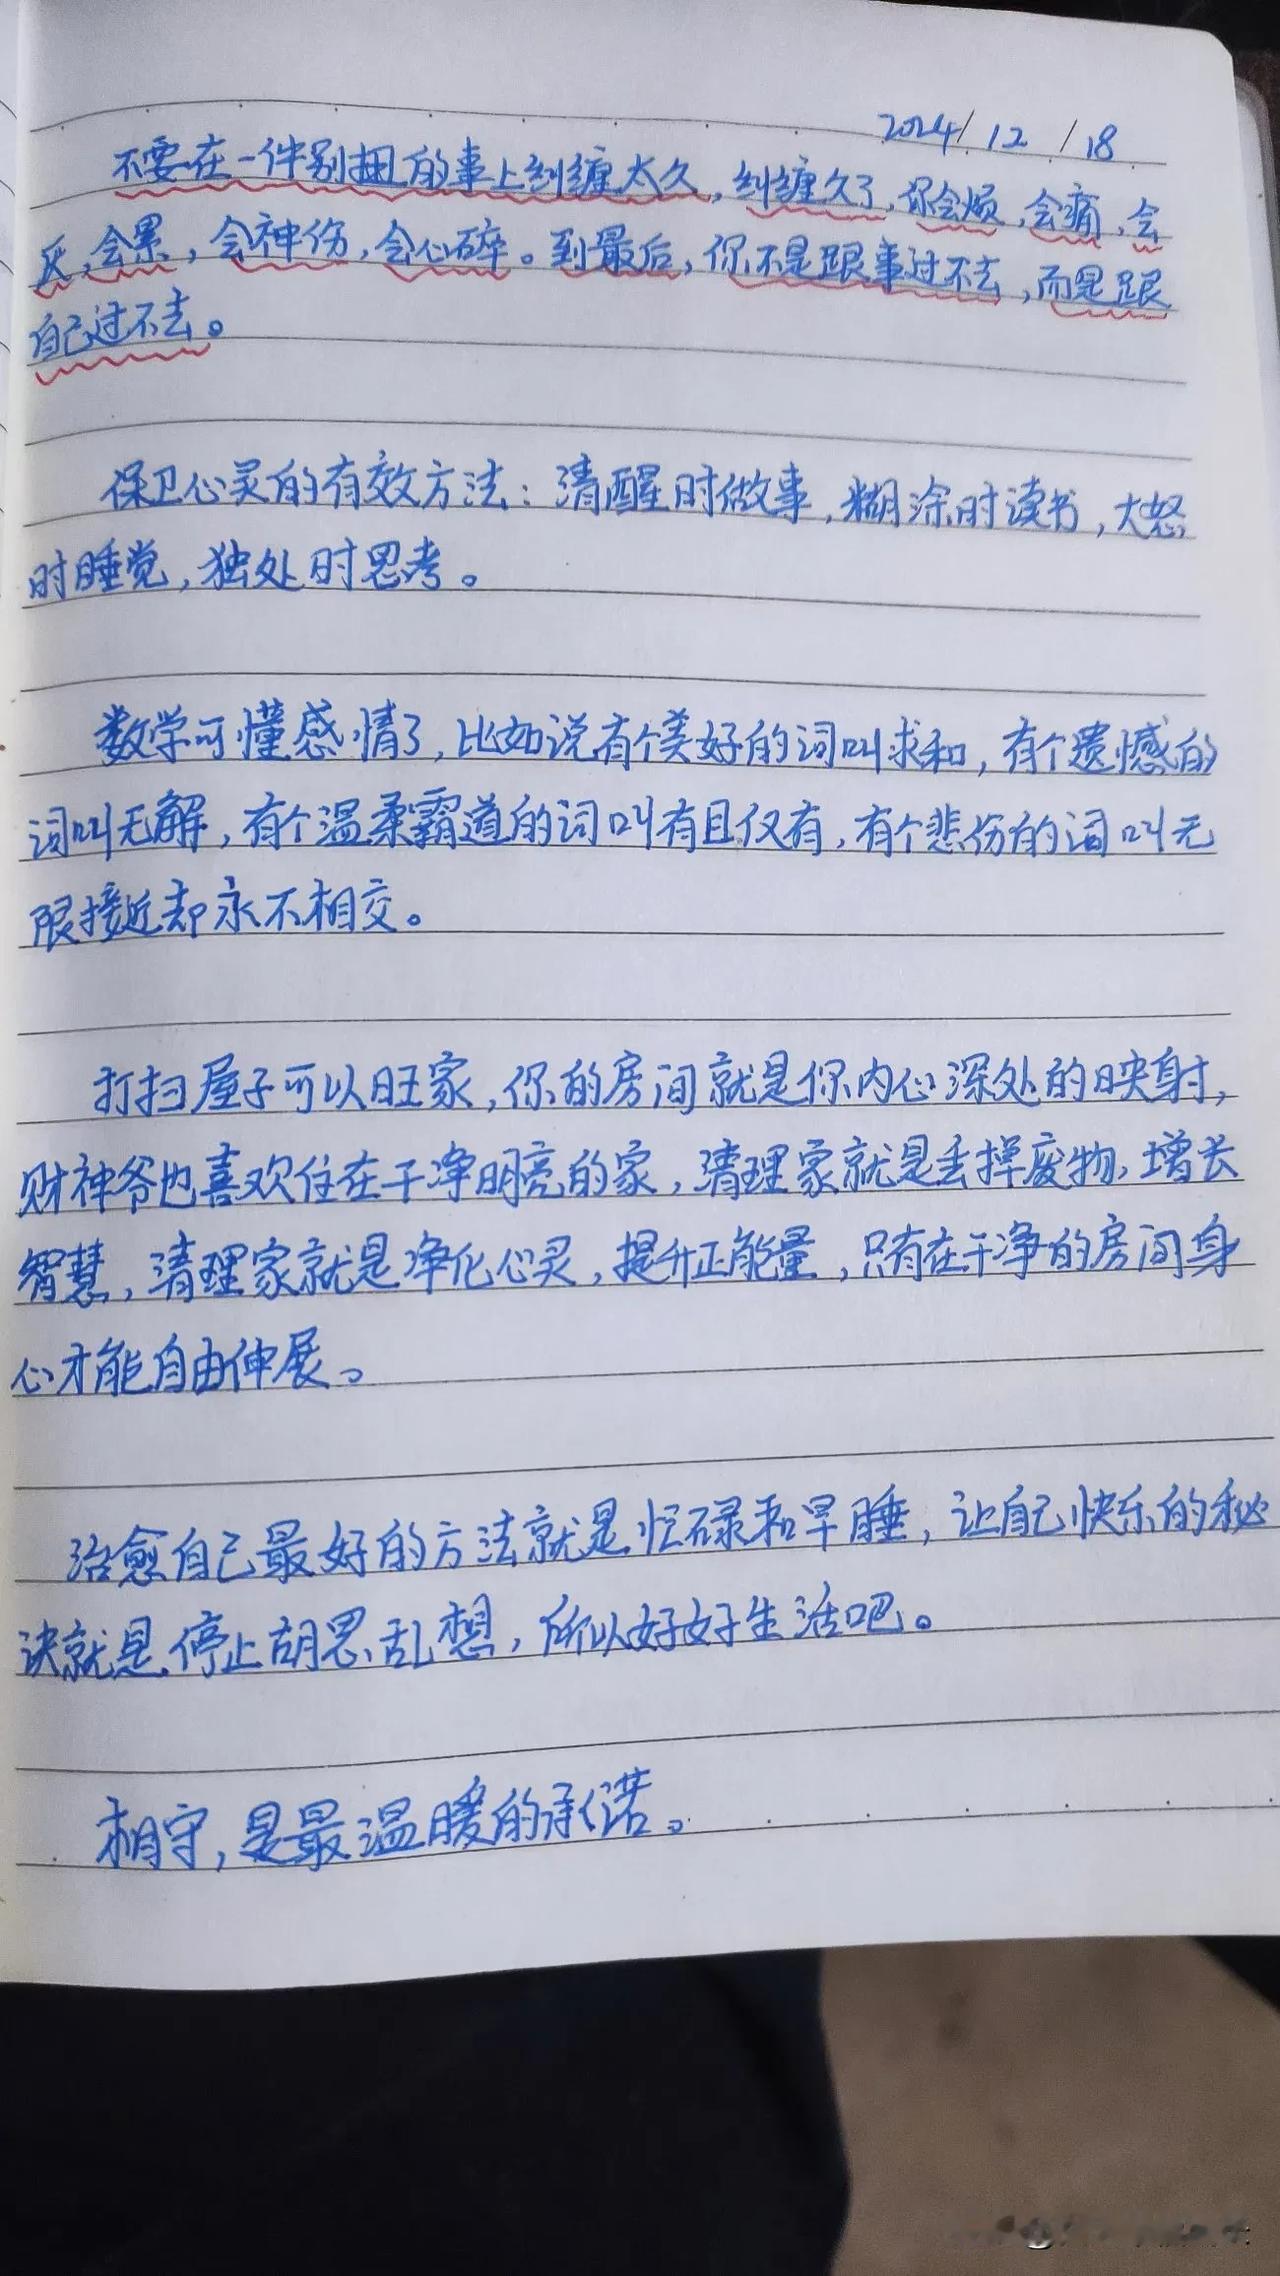 2024/12/18
不要在一件别扭的事上纠缠太久,纠缠久了,你会烦,会痛,会
灰,会累,会神伤,会心碎。到最后,你不是跟事过不去,而是跟
自己过不去。
保卫心灵的有效方法:清醒时做事,糊涂时读书,大怒
时睡觉,独处时思考。
数学可懂感情了,比如说有个美好的词叫求和,有个遗憾的
词叫无解,有个温柔霸道的词叫有且仅有,有个悲伤的词叫无
限接近却永不相交。
打扫屋子可以旺家,你的房间就是你内心深处的映射,
财神爷也喜欢住在干净明亮的家,清理家就是丢掉废物,增长
智慧,清理家就是净化心灵,提升正能量,只有在干净的房间身
心才能自由伸展。
治愈自己最好的方法就是忙碌和早睡,让自己快乐的秘
诀就是停止胡思乱想,所以好好生活吧。
相守,是最温暖的承诺。